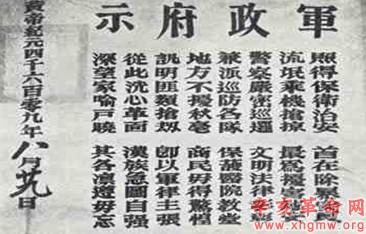 軍政府示
照得保衛治安 首在除暴安良
流氓乘機搶掠 最為擾害
警察嚴密巡邏 文明法律
兼派巡防各隊 保護醫院教堂
地方不擾秋毫 商民毋得驚惶
訊明匪類搶劫 即以軍律主張
從此洗心革面 漢族急圖自强
深望家喻戶曉 其各凜遵毋忘
黃帝紀元四千六百零九年八月廿九日
辛亥革命网
www.xhgmw.org